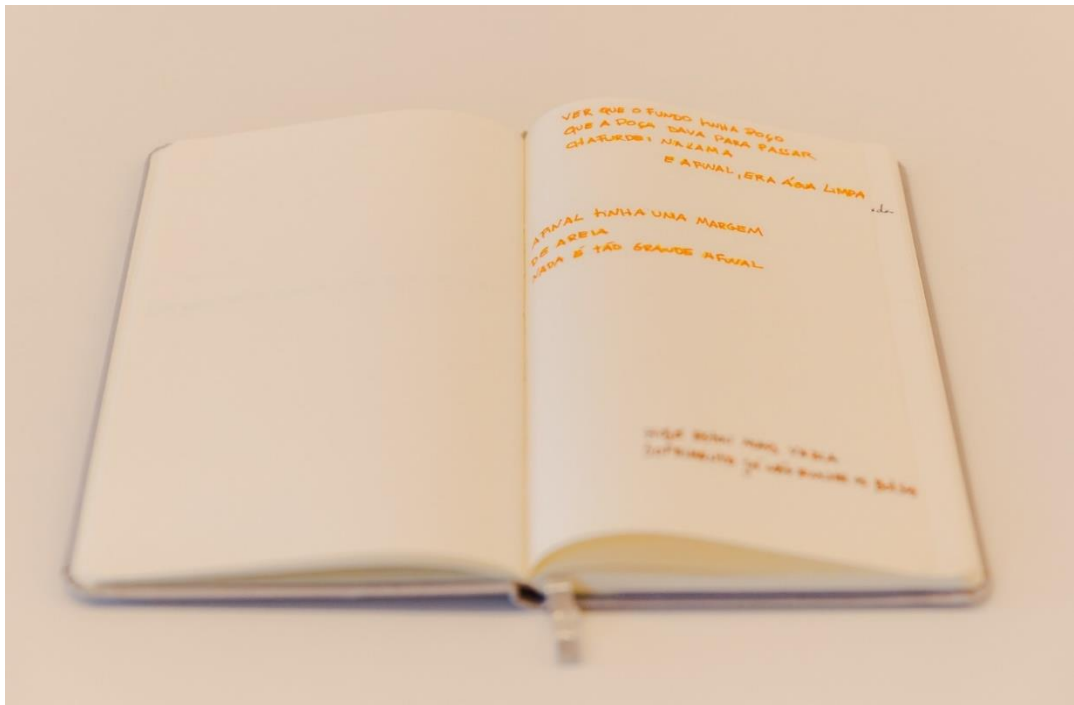 VER QUE O FUNDO TINHA POÇO
QUE A POÇA DAVA PARA PASSAR
CHAFURDEI NA LAMA
E AFINAL, ERA ÁGUA LIMPA
AFINAL TINHA UMA MARGEM
DE AREIA
NADA É TÃO GRANDE AFINAL
HOJE ESTOU MAIS
JÁ NÃO